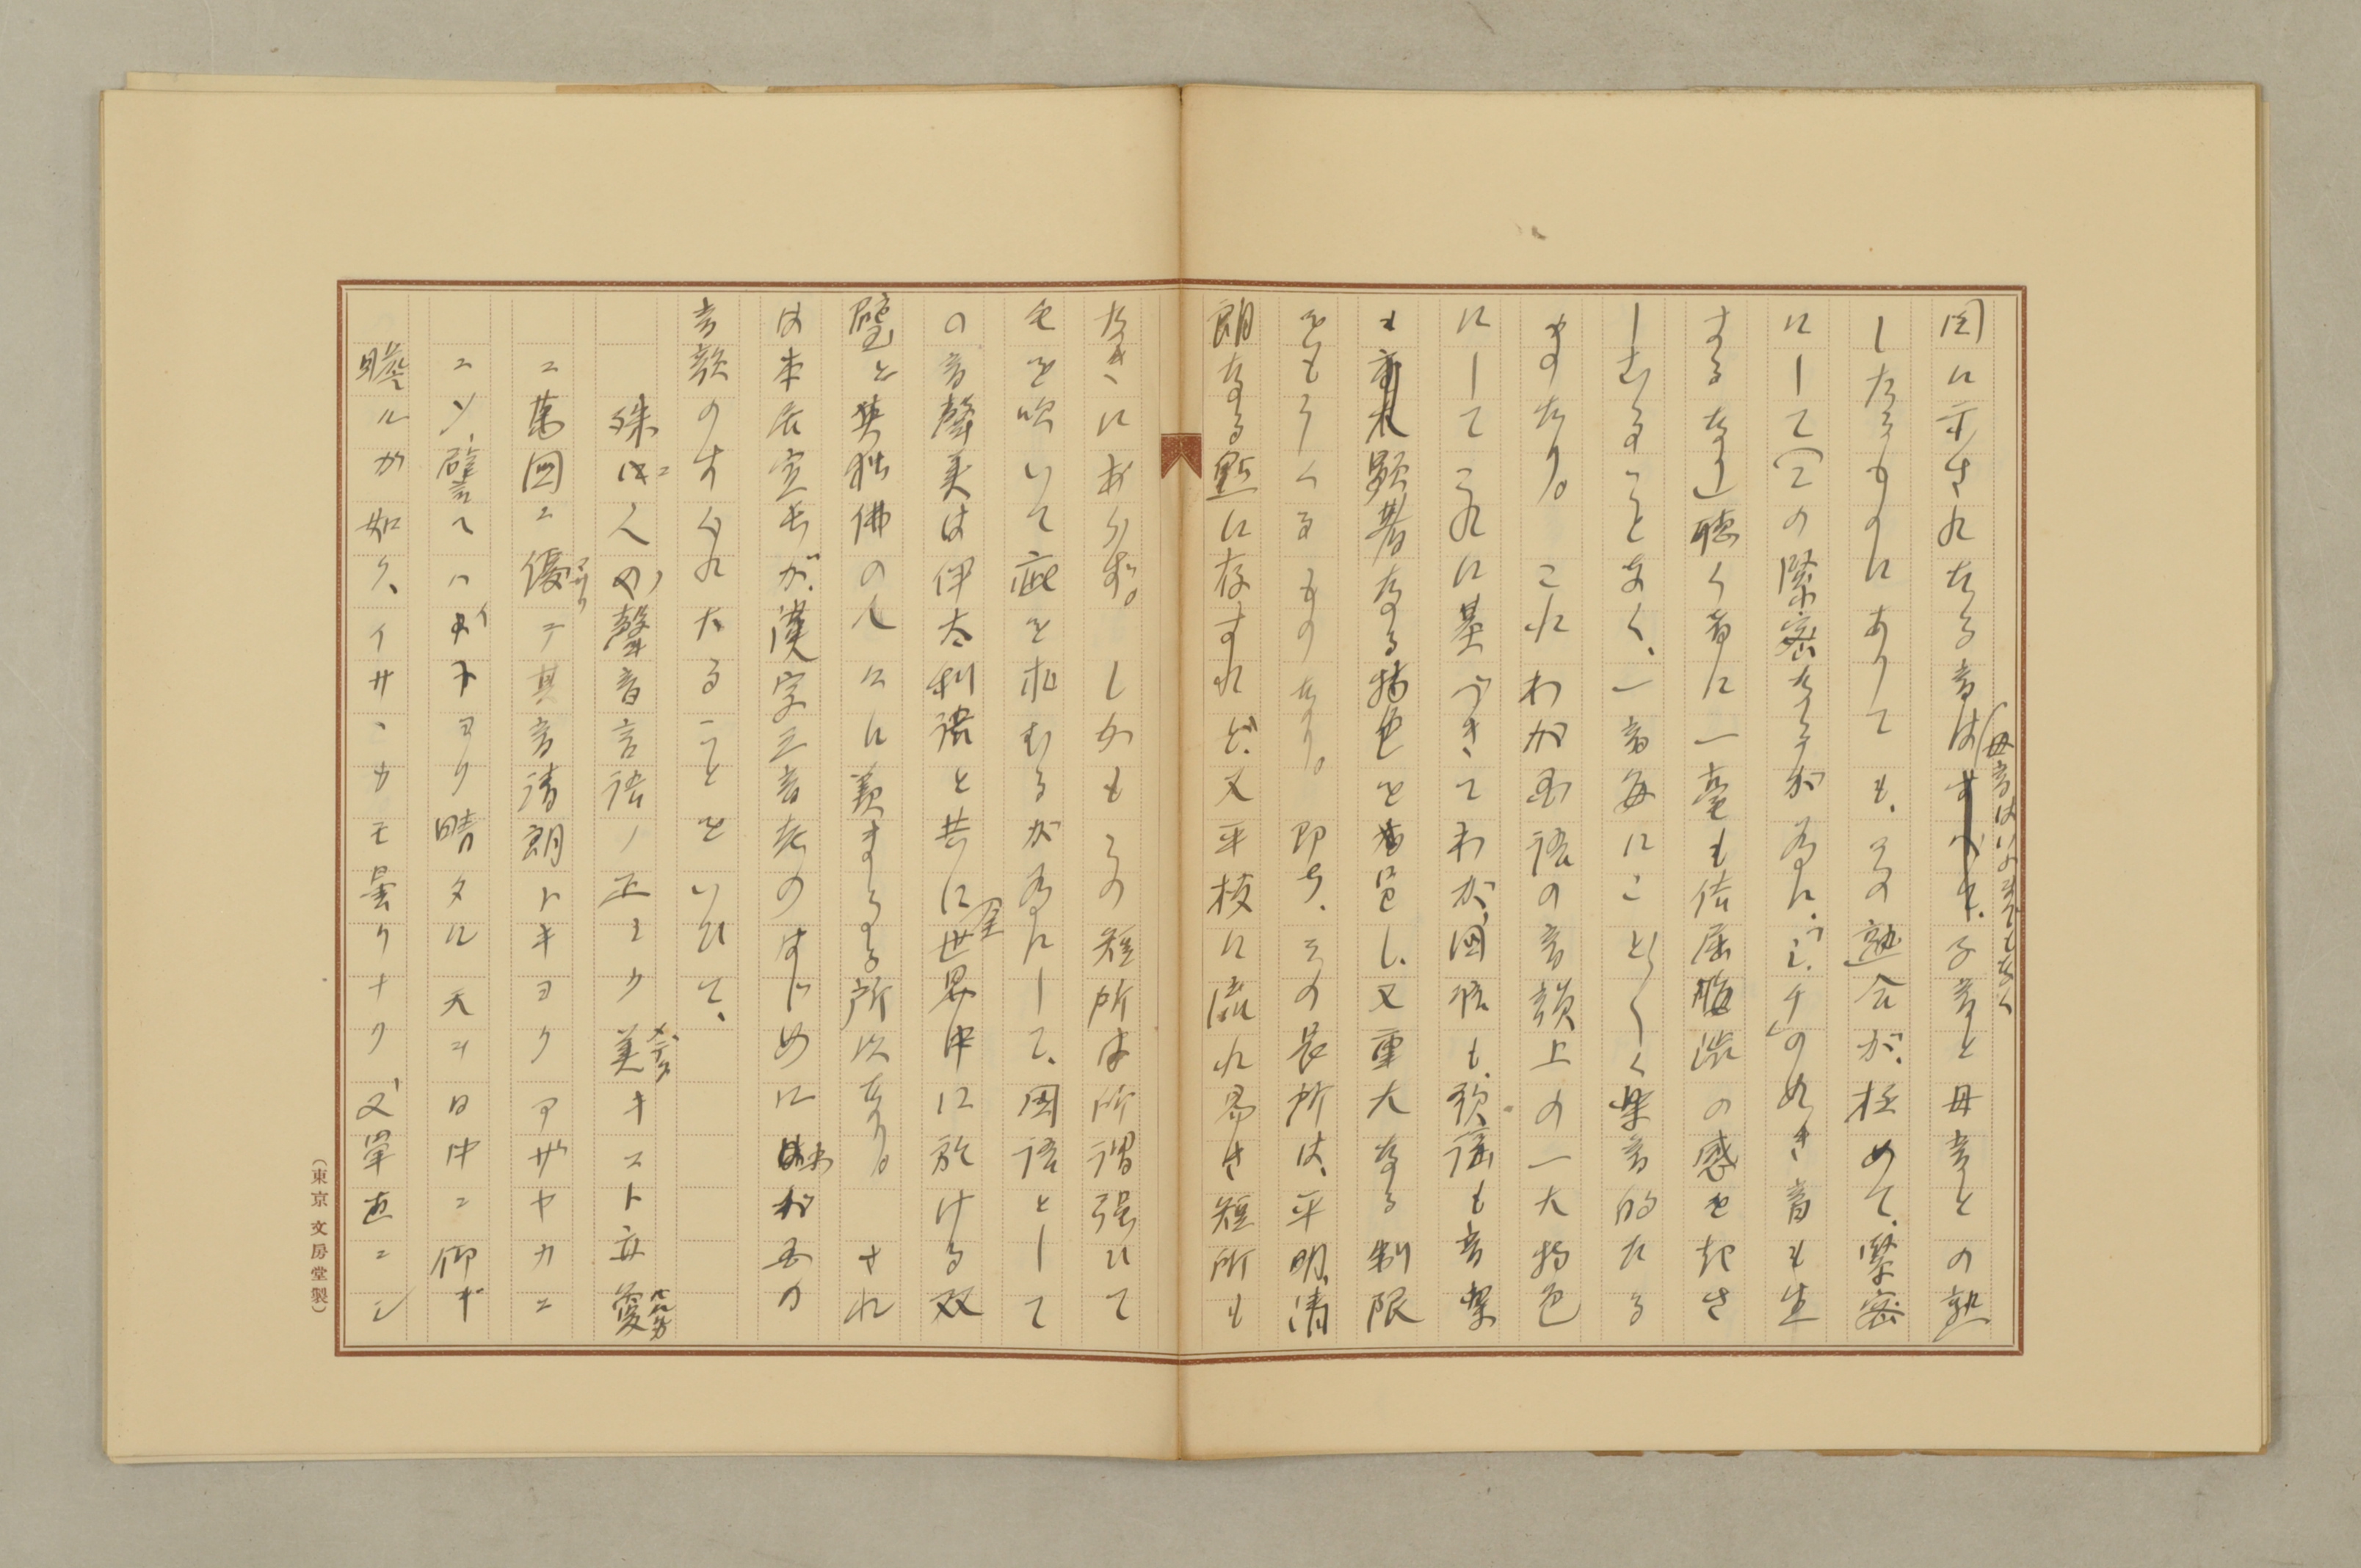 図に示されたる音は(母音はいふまでもなく、子音と母音との熟
したるものにありても、その熟合が、極めて、緊密
にして(この緊密なるが為に、「シ、チ」の如き音も生
ずるなり)聴く者に一毫も佶屈晦渋の感を起さ
しむることなく、一音毎にことごとく楽音的たる
ものなり。これわが国語の音韻上の一大特色
にしてこれに基づきてわが国語も、歌謡も音楽
も亦顕著なる特色を有し、又重大なる制限
をもうくるものなり。即ち、その長所は、平明、清
朗なる点に存すれど、又平板に流れ易き短所も
なきにあらず。しかもその短所は所謂強ひて
毛を吹いて疵を求むるが為にして、国語として
の音声美は伊太利語と共に全世界中に於ける双
璧と英独仏の人々に羨まるる所以なり。され
は本居宣長が、漢字三音考のはじめにわが国の
音韻のすぐれたることをいひて、
殊に人の声音言語ノ正シク美メデタキコト亦夐ハルカ
ニ萬國ニ優マサリテ其音清朗トキヨクアザヤカニ
ニシ、譬ヘハイトヨク晴タル天ヲ日中ニ仰ギ
瞻ルガ如ク、イサヽカモ曇リナク、又単直ニシ
(東京 文房堂製)